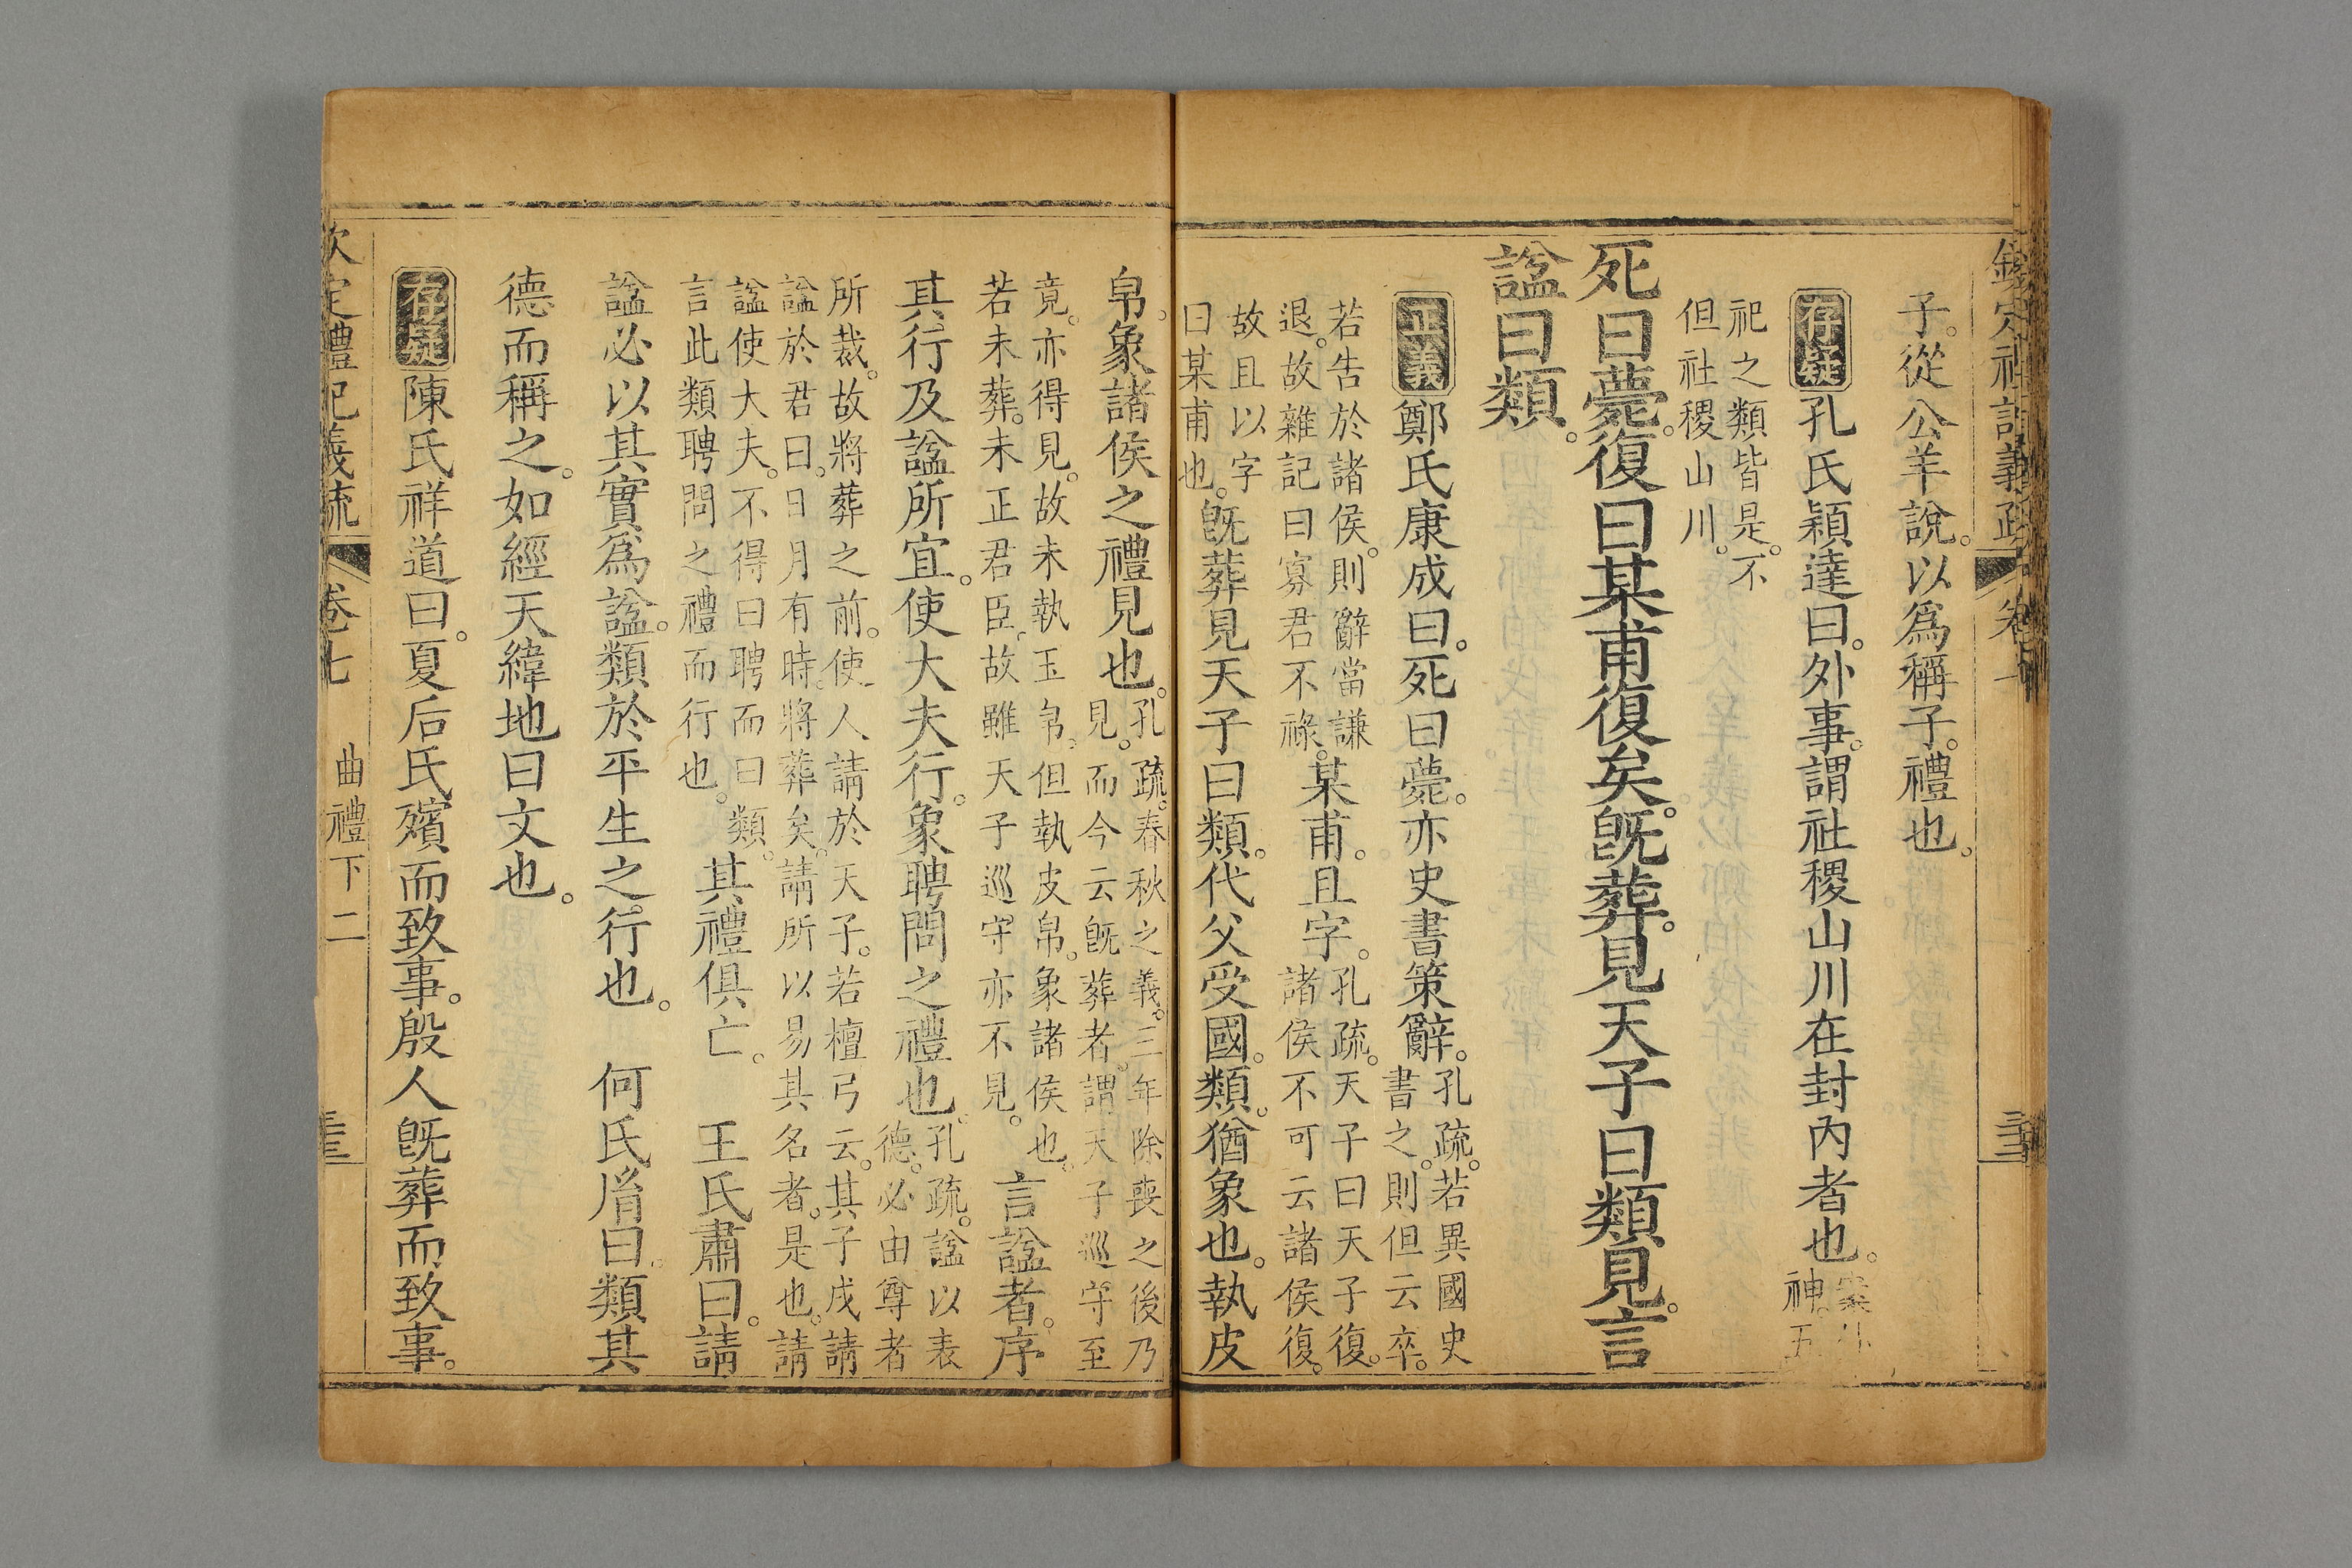 欽定禮記義疏 卷七
子。從公羊說。以爲稱子。禮也。
存疑 孔氏穎達曰。外事。謂社稷山川在封內者也。案外神。五
祀之類皆是。不
但社稷山川。
死曰薨。復曰某甫復矣。旣葬。見天子曰類見。言
諡曰類。
正義 鄭氏康成曰。死曰薨。亦史書策辭。孔疏。若異國史
書之。則但云卒。
若告於諸侯。則辭當謙
退。故雜記曰寡君不祿。某甫。且字。孔疏。天子曰天子復。
諸侯不可云諸侯復。
故且以字
曰某甫也。旣葬見天子曰類。代父受國。類。猶象也。執皮
帛。象諸侯之禮見也。孔疏。春秋之義。三年除喪之後乃
見。而今云旣葬者。謂天子巡守至
竟。亦得見。故未執玉帛。但執皮帛。象諸侯也。
若未葬。未正君臣。故雖天子巡守亦不見。言諡者。序
其行及諡所宜。使大夫行。象聘問之禮也。孔疏。諡以表
德。必由尊者
所裁。故將葬之前。使人請於天子。若檀弓云。其子戍請
諡於君曰。日月有時。將葬矣。請所以易其名者。是也。請
諡使大夫。不得曰聘而曰類。
言此類聘問之禮而行也。其禮俱亡。 王氏肅曰。請
諡必以其實爲諡。類於平生之行也。 何氏胤曰。類其
德而稱之。如經天緯地曰文也。
存疑 陳氏祥道曰。夏后氏殯而致事。殷人旣葬而致事。
欽定禮記義疏 卷七 曲禮下二